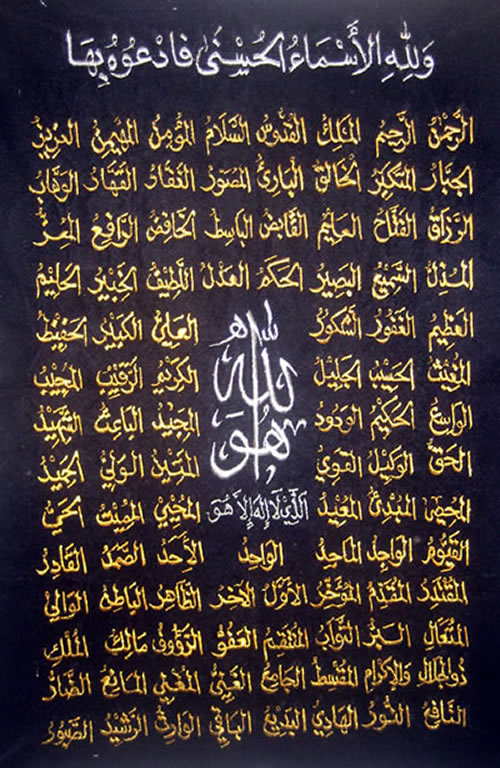 وَلِلّٰهِ الأَسْمَاءُ الْحُسْنَىٰ فَادْعُوهُ بِهَا
الرَّحْمٰنُ الرَّحِيمُ المَلِكُ القُدُّوسُ السَّلَامُ المُؤْمِنُ المُهَيْمِنُ العَزِيزُ
الجَبَّارُ المُتَكَبِّرُ الخَالِقُ البَارِئُ المُصَوِّرُ الغَفَّارُ القَهَّارُ الوَهَّابُ
الرَّزَّاقُ الفَتَّاحُ العَلِيمُ القَابِضُ البَاسِطُ الخَافِضُ الرَّافِعُ المُعِزُّ
المُذِلُّ السَّمِيعُ البَصِيرُ الحَكَمُ العَدْلُ اللَّطِيفُ الخَبِيرُ الحَلِيمُ
العَظِيمُ الغَفُورُ الشَّكُورُ العَلِيُّ الكَبِيرُ الحَفِيظُ
المُقِيتُ الحَسِيبُ الجَلِيلُ الكَرِيمُ الرَّقِيبُ المُجِيبُ
هُوَ اللّٰه
الوَاسِعُ الحَكِيمُ الوَدُودُ المَجِيدُ البَاعِثُ الشَّهِيدُ
الحَقُّ الوَكِيلُ القَوِيُّ المَتِينُ الوَلِيُّ الحَمِيدُ
المُحْصِي المُبْدِئُ المُعِيدُ الَّذِي لَا إِلٰهَ إِلَّا هُوَ المُحْيِي المُمِيتُ الحَيُّ
القَيُّومُ الوَاجِدُ المَاجِدُ الوَاحِدُ الأَحَدُ الصَّمَدُ القَادِرُ
المُقْتَدِرُ المُقَدِّمُ المُؤَخِّرُ الأَوَّلُ الآخِرُ الظَّاهِرُ البَاطِنُ الوَالِي
المُتَعَالِ البَرُّ التَّوَّابُ المُنْتَقِمُ العَفُوُّ الرَّؤُوفُ مَالِكُ المُلْكِ
ذُو الجَلَالِ وَالإِكْرَامِ المُقْسِطُ الجَامِعُ الغَنِيُّ المُغْنِي المَانِعُ الضَّارُّ
النَّافِعُ النُّورُ الهَادِي البَدِيعُ البَاقِي الوَارِثُ الرَّشِيدُ الصَّبُورُ